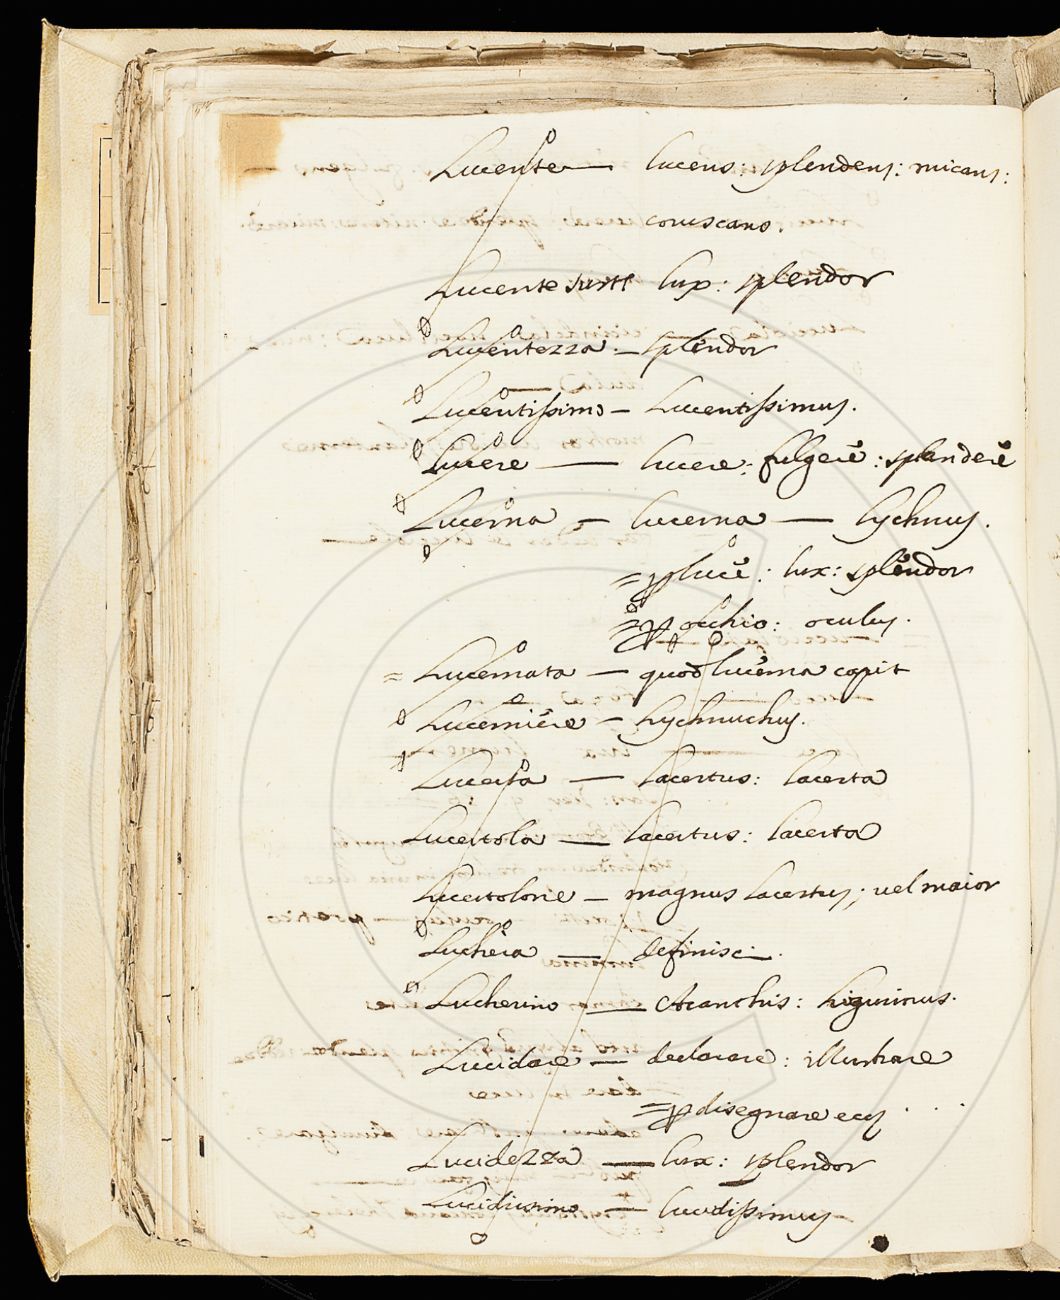 Lucente — lucens: splendens: micans:
coruscans.
Lucente sustt lux: splendor
Lucentezza. — splendor
Lucentissimo — Lucentissimus.
Lucere — lucere: fulgere: splendere
Lucerna — lucerna — lychnus.
= p luce: lux: splendor
= p occhio: oculus.
= Lucernata — quod lucerna capit
Lucerniere — Lychnuchus.
Lucerta — lacertus: lacerta
Lucertola — lacertus: lacerta
Lucertolone — magnus lacertus; vel maior
Luchera — definisci.
Lucherino — Acanthis: ligurinus.
Lucidare — declarare: illustrare
= p disegnare
Lucidezza — lux: splendor
Lucidissimo — lucidissimus